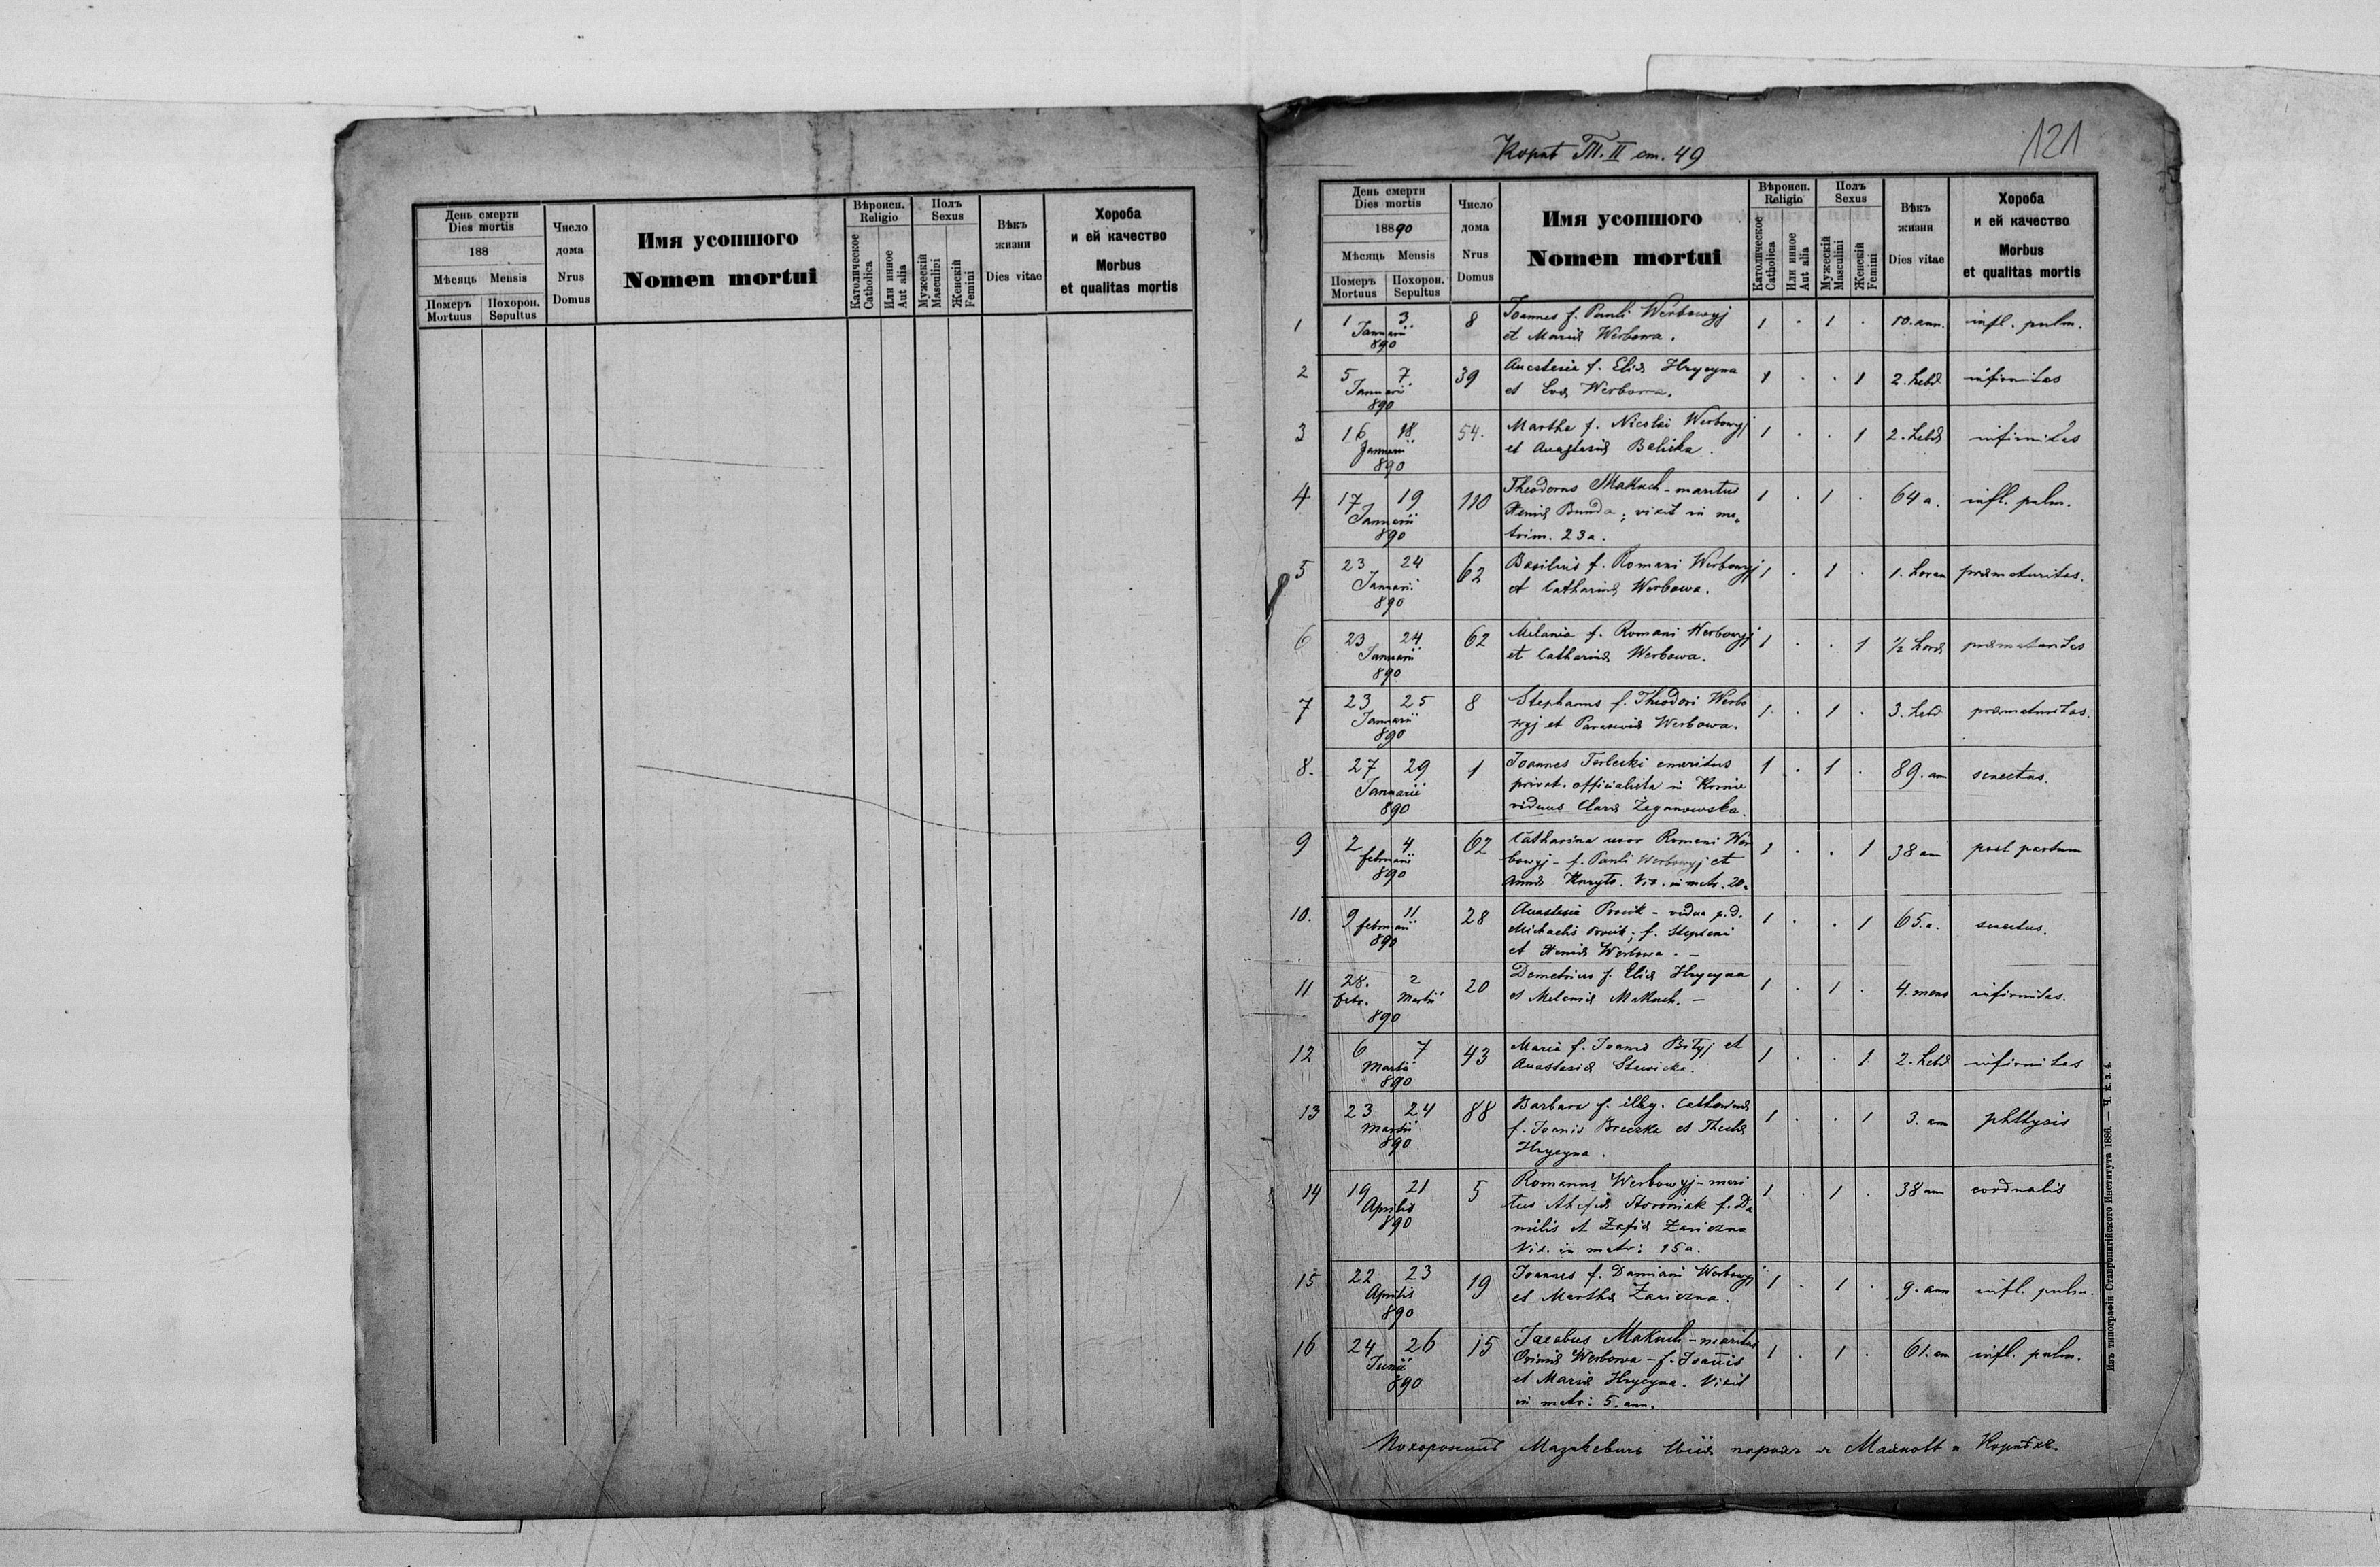 День смерти
Dies mortis
188
Мѣсяць Mensis
Померъ
Mortuus
Похорон.
Sepultus
Число
дома
Nrus
Domus
Имя усопшого
Nomen mortui
Вѣроисп.
Religio
Католическое
Catholica
Или инное
Aut alia
Полъ
Sexus
Мужескій
Masculini
Женскій
Femini
Вѣкъ
жизни
Dies vitae
Хороба
и ей качество
Morbus
et qualitas mortis
121
Т. II ст. 49
День смерти
Dies mortis
18890
Мѣсяць Mensis
Померъ
Mortuus
Похорон.
Sepultus
Число
дома
Nrus
Domus
Имя усопшого
Nomen mortui
Вѣроисп.
Religio
Католическое
Catholica
Или инное
Aut alia
Полъ
Sexus
Мужескій
Masculini
Женскій
Femini
Вѣкъ
жизни
Dies vitae
Хороба
и ей качество
Morbus
et qualitas mortis
1 1 3 8 Joannes f. Pauli Werbowyj 1 . 1 . 10. ann. infl. pulm.
Januarii et Mariæ Werbowa.
890
2 5 7 39 Anastasia f. Eliæ Hrycyna 1 . . 1 2. hebd infirmitas
Januarii et Evæ Werbowa.
890
3 16 18 54. Martha f. Nicolai Werbowyj 1 . . 1 2. hebd infirmitas
Januarii et Anastasiæ Balicka.
890
4 17 19 110 Theodorus Makuch - maritus 1 . 1 . 64 a. infl. pulm.
Januarii Xeniæ Bunda; vixit in ma-
890 trim. 23 a.
5 23 24 62 Basilius f. Romani Werbowyj 1 . 1 . 1. horam præmaturitas.
Januarii et Catharinæ Werbowa.
890
6 23 24 62 Melania f. Romani Werbowyj 1 . . 1 ½ horæ præmaturitas
Januarii et Catharinæ Werbowa.
890
7 23 25 8 Stephanus f. Theodori Werbo 1 . 1 . 3. hebd præmaturitas.
Januarii wyj et Parasceviæ Werbowa.
890
8. 27 29 1 Joannes Terlecki emeritus 1 . 1 . 89. ann senectus.
Januarii privat. officialista in
890 viduus Claræ Żeganowska.
9 2 4 62 Catharina uxor Romani Wer 1 . . 1 38 ann post partum
februarii bowyj - f. Pauli Werbowyj et
890 Annæ Vix. in matr. 20.
10. 9 11 28 Anastasia - vidua p. d. 1 . . 1 65. a. senectus.
februarii Michaelis f.
890 et Xeniæ Werbowa. -
11 28. 2 20 Demetrius f. Eliæ Hrycyna 1 . 1 . 4. mens infirmitas.
febr. Martii et Melaniæ Makuch. -
890
12 6 7 43 Maria f. Joannis et 1 . . 1 2. hebd infirmitas
Martii Anastasiæ
890
13 23 24 88 Barbara f. illeg. Catharinæ 1 . . 1 3. ann phthysis
Martii f. Joannis et Theclæ
890 Hrycyna.
14 19 21 5 Romanus Werbowyj - mari 1 . 1 . 38 ann
Aprilis tus f. Da
890 et Zariczna
Vix. in matr: 15 a.
15 22 23 19 Joannes f. Damiani Werbowyj 1 . 1 . 9. ann infl. pulm.
Aprilis et Marthæ Zariczna.
890
16 24 26 15 Jacobus Makuch - maritus 1 . 1 . 61. an infl. pulm.
Junii Werbowa - f. Joannis
890 et Mariæ Hrycyna. Vixit
in matr: 5. ann.
Изъ типографіи Ставропигійского Института 1886. — Ч. к. з. 4.